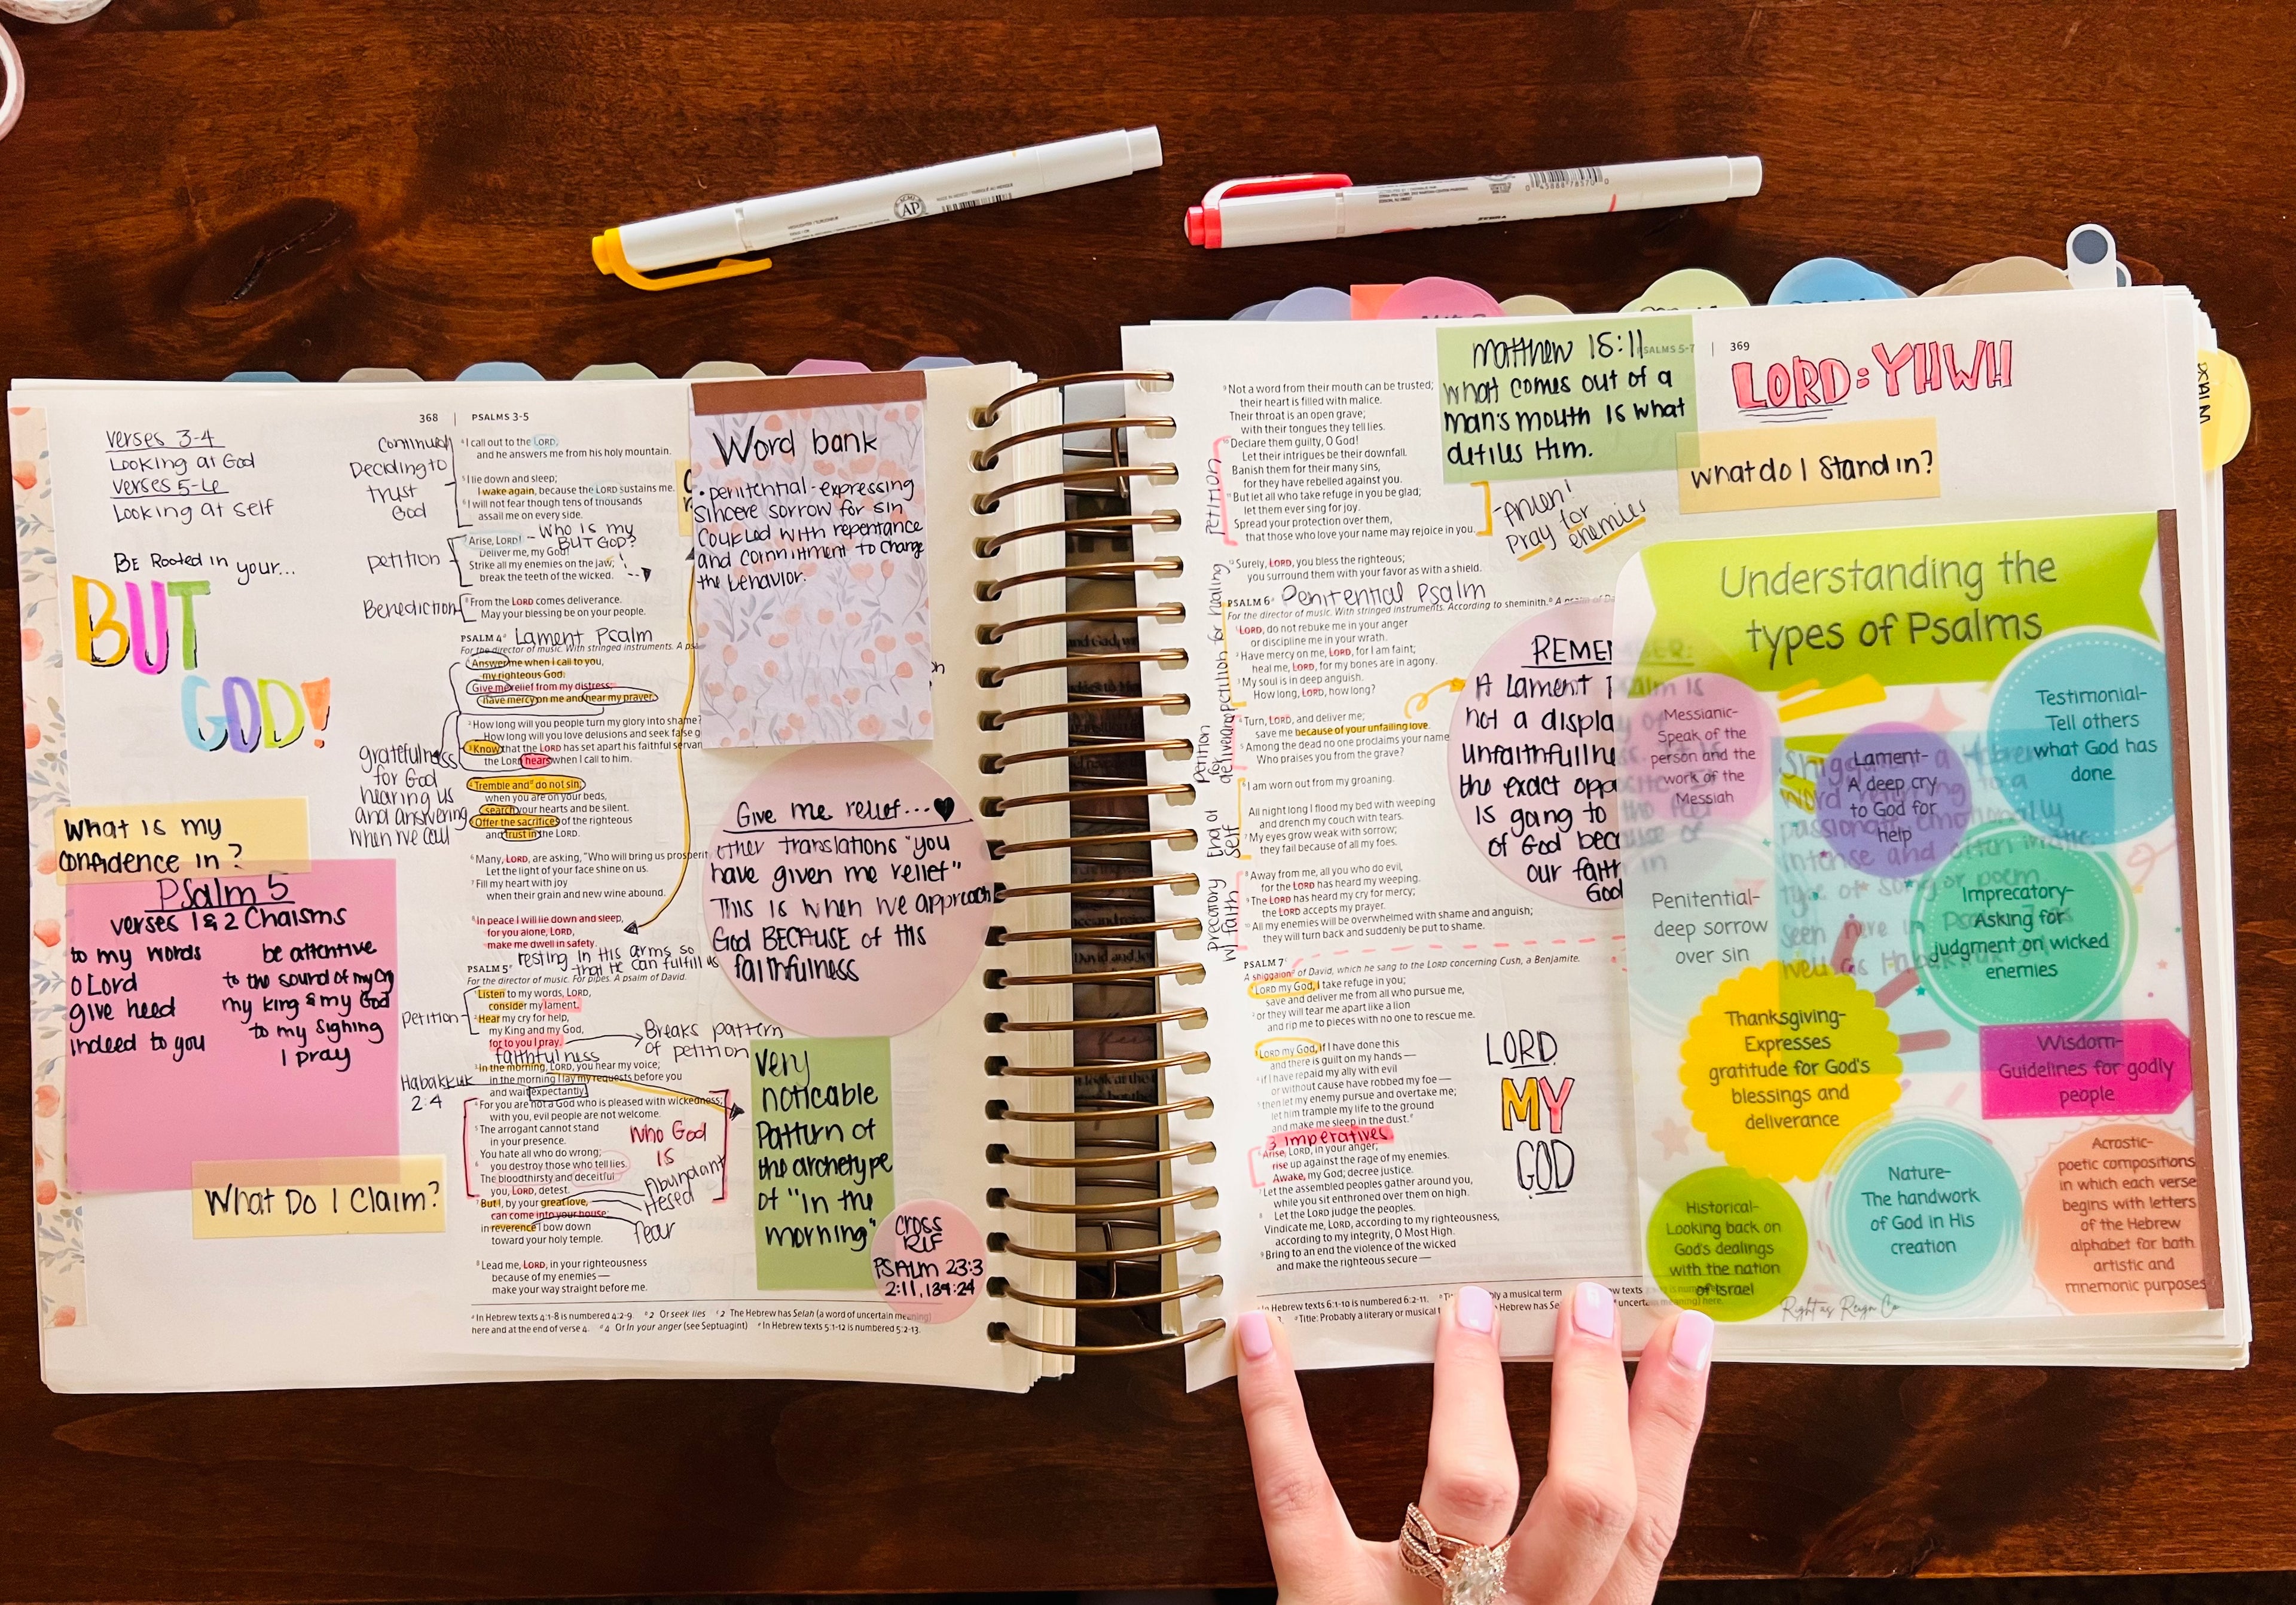 368 | PSALMS 3-5
verses 3-4
Looking at God
verses 5-6
Looking at self
BE Rooted in your...
BUT
GOD!
What is my
confidence in?
Psalm 5
verses 1 & 2 Chaisms
to my words
O Lord
give heed
indeed to you
be attentive
to the sound of my cry
my king & my God
to my sighing
I pray
What Do I Claim?
Deciding to
trust
God
petition
Benediction
gratefulness
for God
hearing us
and answering
when we call
Petition
Habakkuk
2:4
4 I call out to the LORD,
and he answers me from his holy mountain.
5 I lie down and sleep;
I wake again, because the LORD sustains me.
6 I will not fear though tens of thousands
assail me on every side.
7 Arise, LORD!
Deliver me, my God!
Strike all my enemies on the jaw;
break the teeth of the wicked.
- Who is my
BUT GOD?
8 From the LORD comes deliverance.
May your blessing be on your people.
PSALM 4 Lament Psalm
For the director of music. With stringed instruments. A
1 Answer me when I call to you,
my righteous God.
Give me relief from my distress;
have mercy on me and hear my prayer.
2 How long will you people turn my glory into shame?
How long will you love delusions and seek false
3 Know that the LORD has set apart his faithful
the LORD hears when I call to him.
4 Tremble and do not sin;
when you are on your beds,
search your hearts and be silent.
5 Offer the sacrifices of the righteous
and trust in the LORD.
6 Many, LORD, are asking, "Who will bring us
Let the light of your face shine on us.
7 Fill my heart with joy
when their grain and new wine abound.
8 In peace I will lie down and sleep,
for you alone, LORD,
make me dwell in safety.
resting in His arms so
that He can fulfill us
PSALM 5
For the director of music. For pipes. A psalm of David.
1 Listen to my words, LORD,
consider my lament.
2 Hear my cry for help,
my King and my God,
for to you I pray.
Breaks pattern
of petition
faithfulness
3 In the morning, LORD, you hear my voice;
in the morning I lay my requests before you
and wait expectantly.
4 For you are not a God who is pleased with wickedness;
with you, evil people are not welcome.
5 The arrogant cannot stand
in your presence.
You hate all who do wrong;
6 you destroy those who tell lies.
The bloodthirsty and deceitful
you, LORD, detest.
7 But I, by your great love,
can come into your house;
in reverence I bow down
toward your holy temple.
who God
is
Abundant
Hesed
Fear
8 Lead me, LORD, in your righteousness
because of my enemies—
make your way straight before me.
a In Hebrew texts 4:1-8 is numbered 4:2-9. b 2 Or seek lies c 2 The Hebrew has Selah (a word of uncertain meaning)
here and at the end of verse 4. d 4 Or In your anger (see Septuagint) e In Hebrew texts 5:1-12 is numbered 5:2-13.
Word bank
• penitential - expressing
sincere sorrow for sin
coupled with repentance
and commitment to change
the behavior.
Give me relief...
other translations "you
have given me relief"
This is when we approach
God BECAUSE of his
faithfulness
very
noticable
Pattern of
the archetype
of "in the
morning"
CROSS
REF
PSALM 23:3
2:11, 139:24
PSALMS 5-7 | 369
Matthew 15:11
what comes out of a
man's mouth is what
defiles Him.
LORD: YHWH
What do I Stand in?
9 Not a word from their mouth can be trusted;
their heart is filled with malice.
Their throat is an open grave;
with their tongues they tell lies.
10 Declare them guilty, O God!
Let their intrigues be their downfall.
Banish them for their many sins,
for they have rebelled against you.
11 But let all who take refuge in you be glad;
let them ever sing for joy.
Spread your protection over them,
that those who love your name may rejoice in you.
petition
- Amen!
Pray for
enemies
12 Surely, LORD, you bless the righteous;
you surround them with your favor as with a shield.
PSALM 6 Penitential Psalm
For the director of music. With stringed instruments. According to sheminith.
1 LORD, do not rebuke me in your anger
or discipline me in your wrath.
2 Have mercy on me, LORD, for I am faint;
heal me, LORD, for my bones are in agony.
3 My soul is in deep anguish.
How long, LORD, how long?
petition for healing
4 Turn, LORD, and deliver me;
save me because of your unfailing love.
5 Among the dead no one proclaims your name.
Who praises you from the grave?
Petition
for
deliverance
6 I am worn out from my groaning.
All night long I flood my bed with weeping
and drench my couch with tears.
7 My eyes grow weak with sorrow;
they fail because of all my foes.
End of
self
8 Away from me, all you who do evil,
for the LORD has heard my weeping.
9 The LORD has heard my cry for mercy;
the LORD accepts my prayer.
10 All my enemies will be overwhelmed with shame and anguish;
they will turn back and suddenly be put to shame.
precatory
w/ faith
PSALM 7
A shiggaion of David, which he sang to the LORD concerning Cush, a Benjamite.
1 LORD my God, I take refuge in you;
save and deliver me from all who pursue me,
2 or they will tear me apart like a lion
and rip me to pieces with no one to rescue me.
3 LORD my God, if I have done this
and there is guilt on my hands—
4 if I have repaid my ally with evil
or without cause have robbed my foe—
5 then let my enemy pursue and overtake me;
let him trample my life to the ground
and make me sleep in the dust.
3 imperatives
6 Arise, LORD, in your anger;
rise up against the rage of my enemies.
Awake, my God; decree justice.
7 Let the assembled peoples gather around you,
while you sit enthroned over them on high.
8 Let the LORD judge the peoples.
Vindicate me, LORD, according to my righteousness,
according to my integrity, O Most High.
9 Bring to an end the violence of the wicked
and make the righteous secure—
LORD
MY
GOD
REMEMBER:
A Lament Psalm is
not a display of
unfaithfullness
the exact
is going to
of God because of
our faith in
God
Understanding the
types of Psalms
Messianic-
Speak of the
person and the
work of the
Messiah
Lament-
A deep cry
to God for
help
Testimonial-
Tell others
what God has
done
Penitential-
deep sorrow
over sin
Imprecatory-
Asking for
judgment on wicked
enemies
Thanksgiving-
Expresses
gratitude for God's
blessings and
deliverance
Wisdom-
Guidelines for godly
people
Historical-
Looking back on
God's dealings
with the nation
of Israel
Nature-
The handwork
of God in His
creation
Acrostic-
poetic compositions
in which each verse
begins with letters
of the Hebrew
alphabet for both
artistic and
mnemonic purposes
Right as Reign Co
In Hebrew texts 6:1-10 is numbered 6:2-11.
Title: Probably a literary or musical
AP